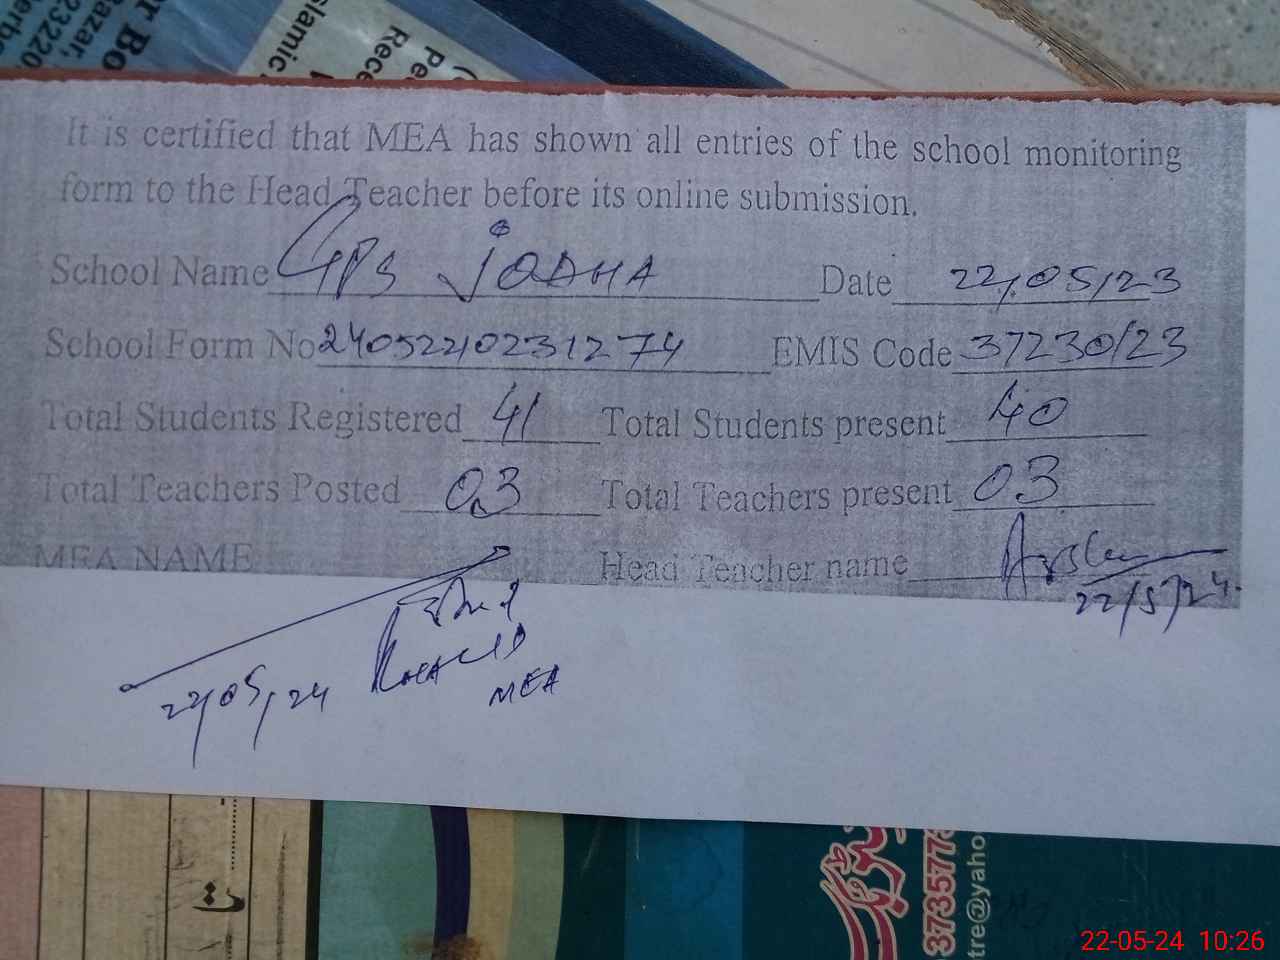 r Bo
Bazar,
2322
slamic
Rece
Pe
It is certified that MEA has shown all entries of the school monitoring
form to the Head Teacher before its online submission.
School Name GPS JODHA Date 22/05/23
School Form No 24052210231274 EMIS Code 37230123
Total Students Registered 41 Total Students present 40
Total Teachers Posted 03 Total Teachers present 03
MEA NAME Head Teacher name
22/5/24
22/05/24 MEA
3735773
tre@yaho
ت
22-05-24 10:26